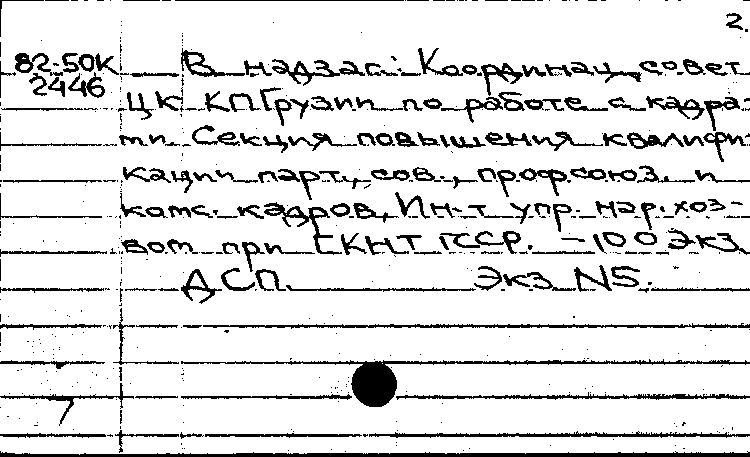 2.
82-50К
2446
В надзаг.: Координац. совет
ЦК КП Грузии по работе с кадра-
ми. Секция повышения квалифи-
кации парт., сов., профсоюз. и
комс. кадров, Ин-т упр. нар. хоз-
вом при ГКНТ ГССР. - 100 экз.
ДСП. Экз N5.
7